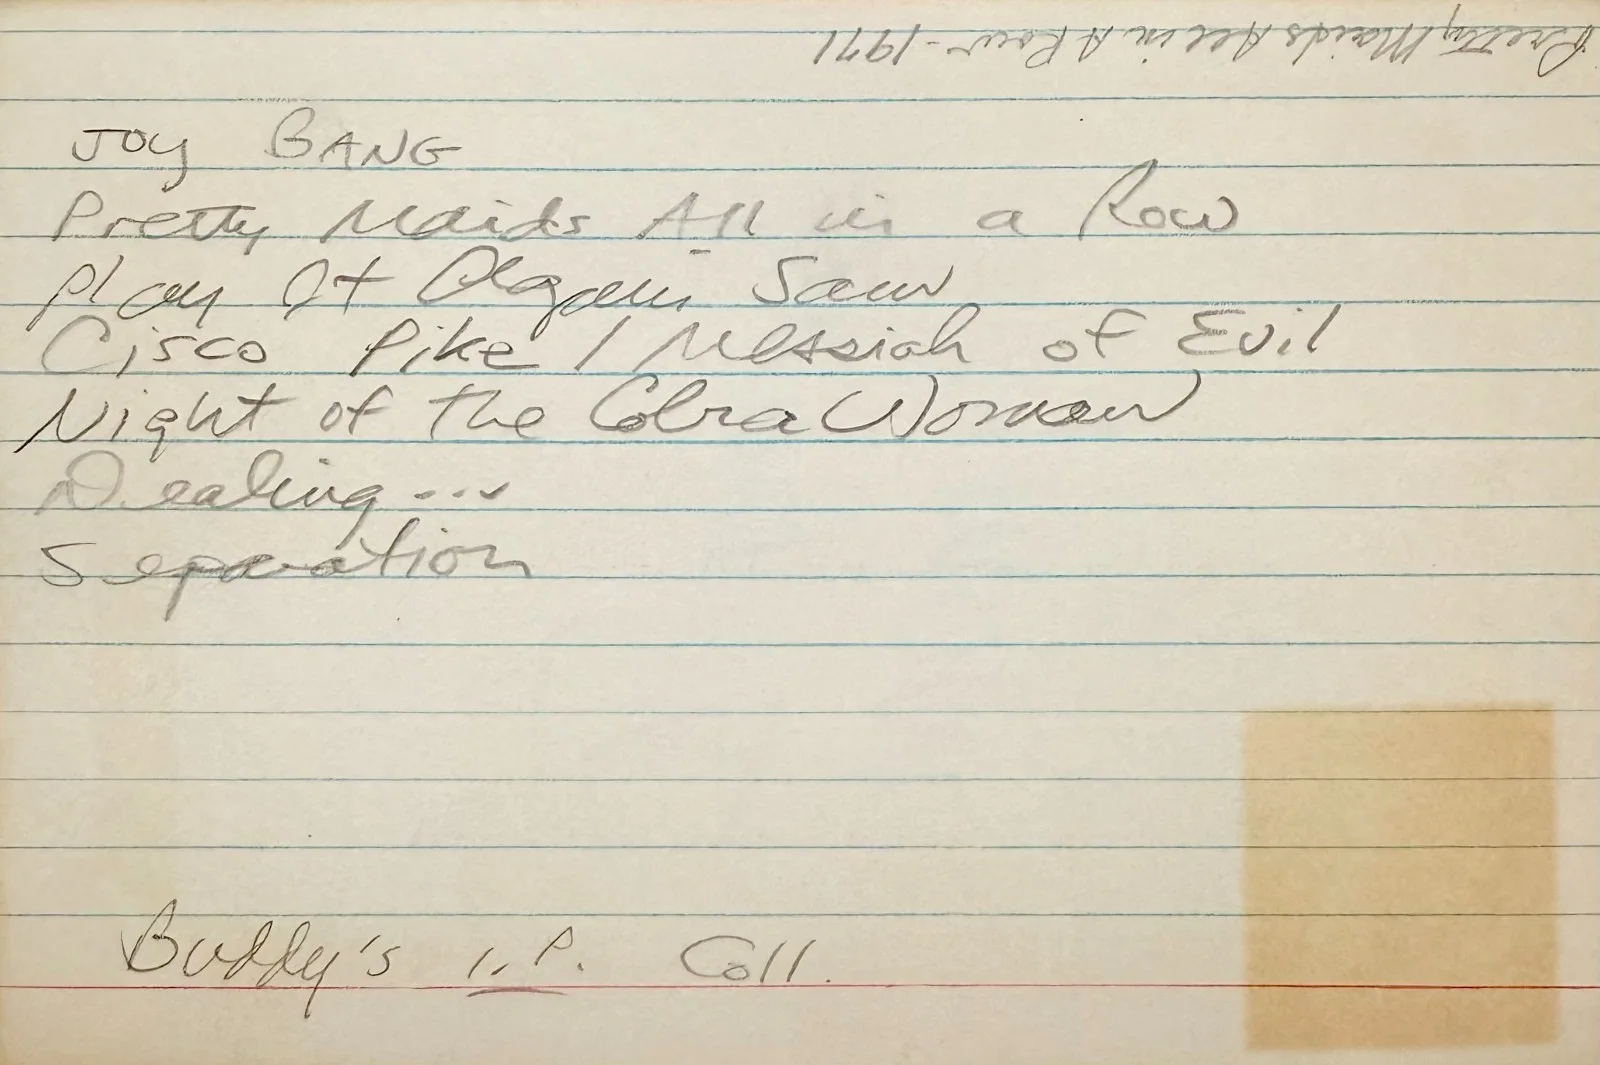 Pretty Maids All in A Row - 1971
JOY BANG
Pretty Maids All in a Row
Play It Again Sam
Cisco Pike / Messiah of Evil
Night of the Cobra Woman
Dealing...
Separation
Buddy's I.P. Coll.